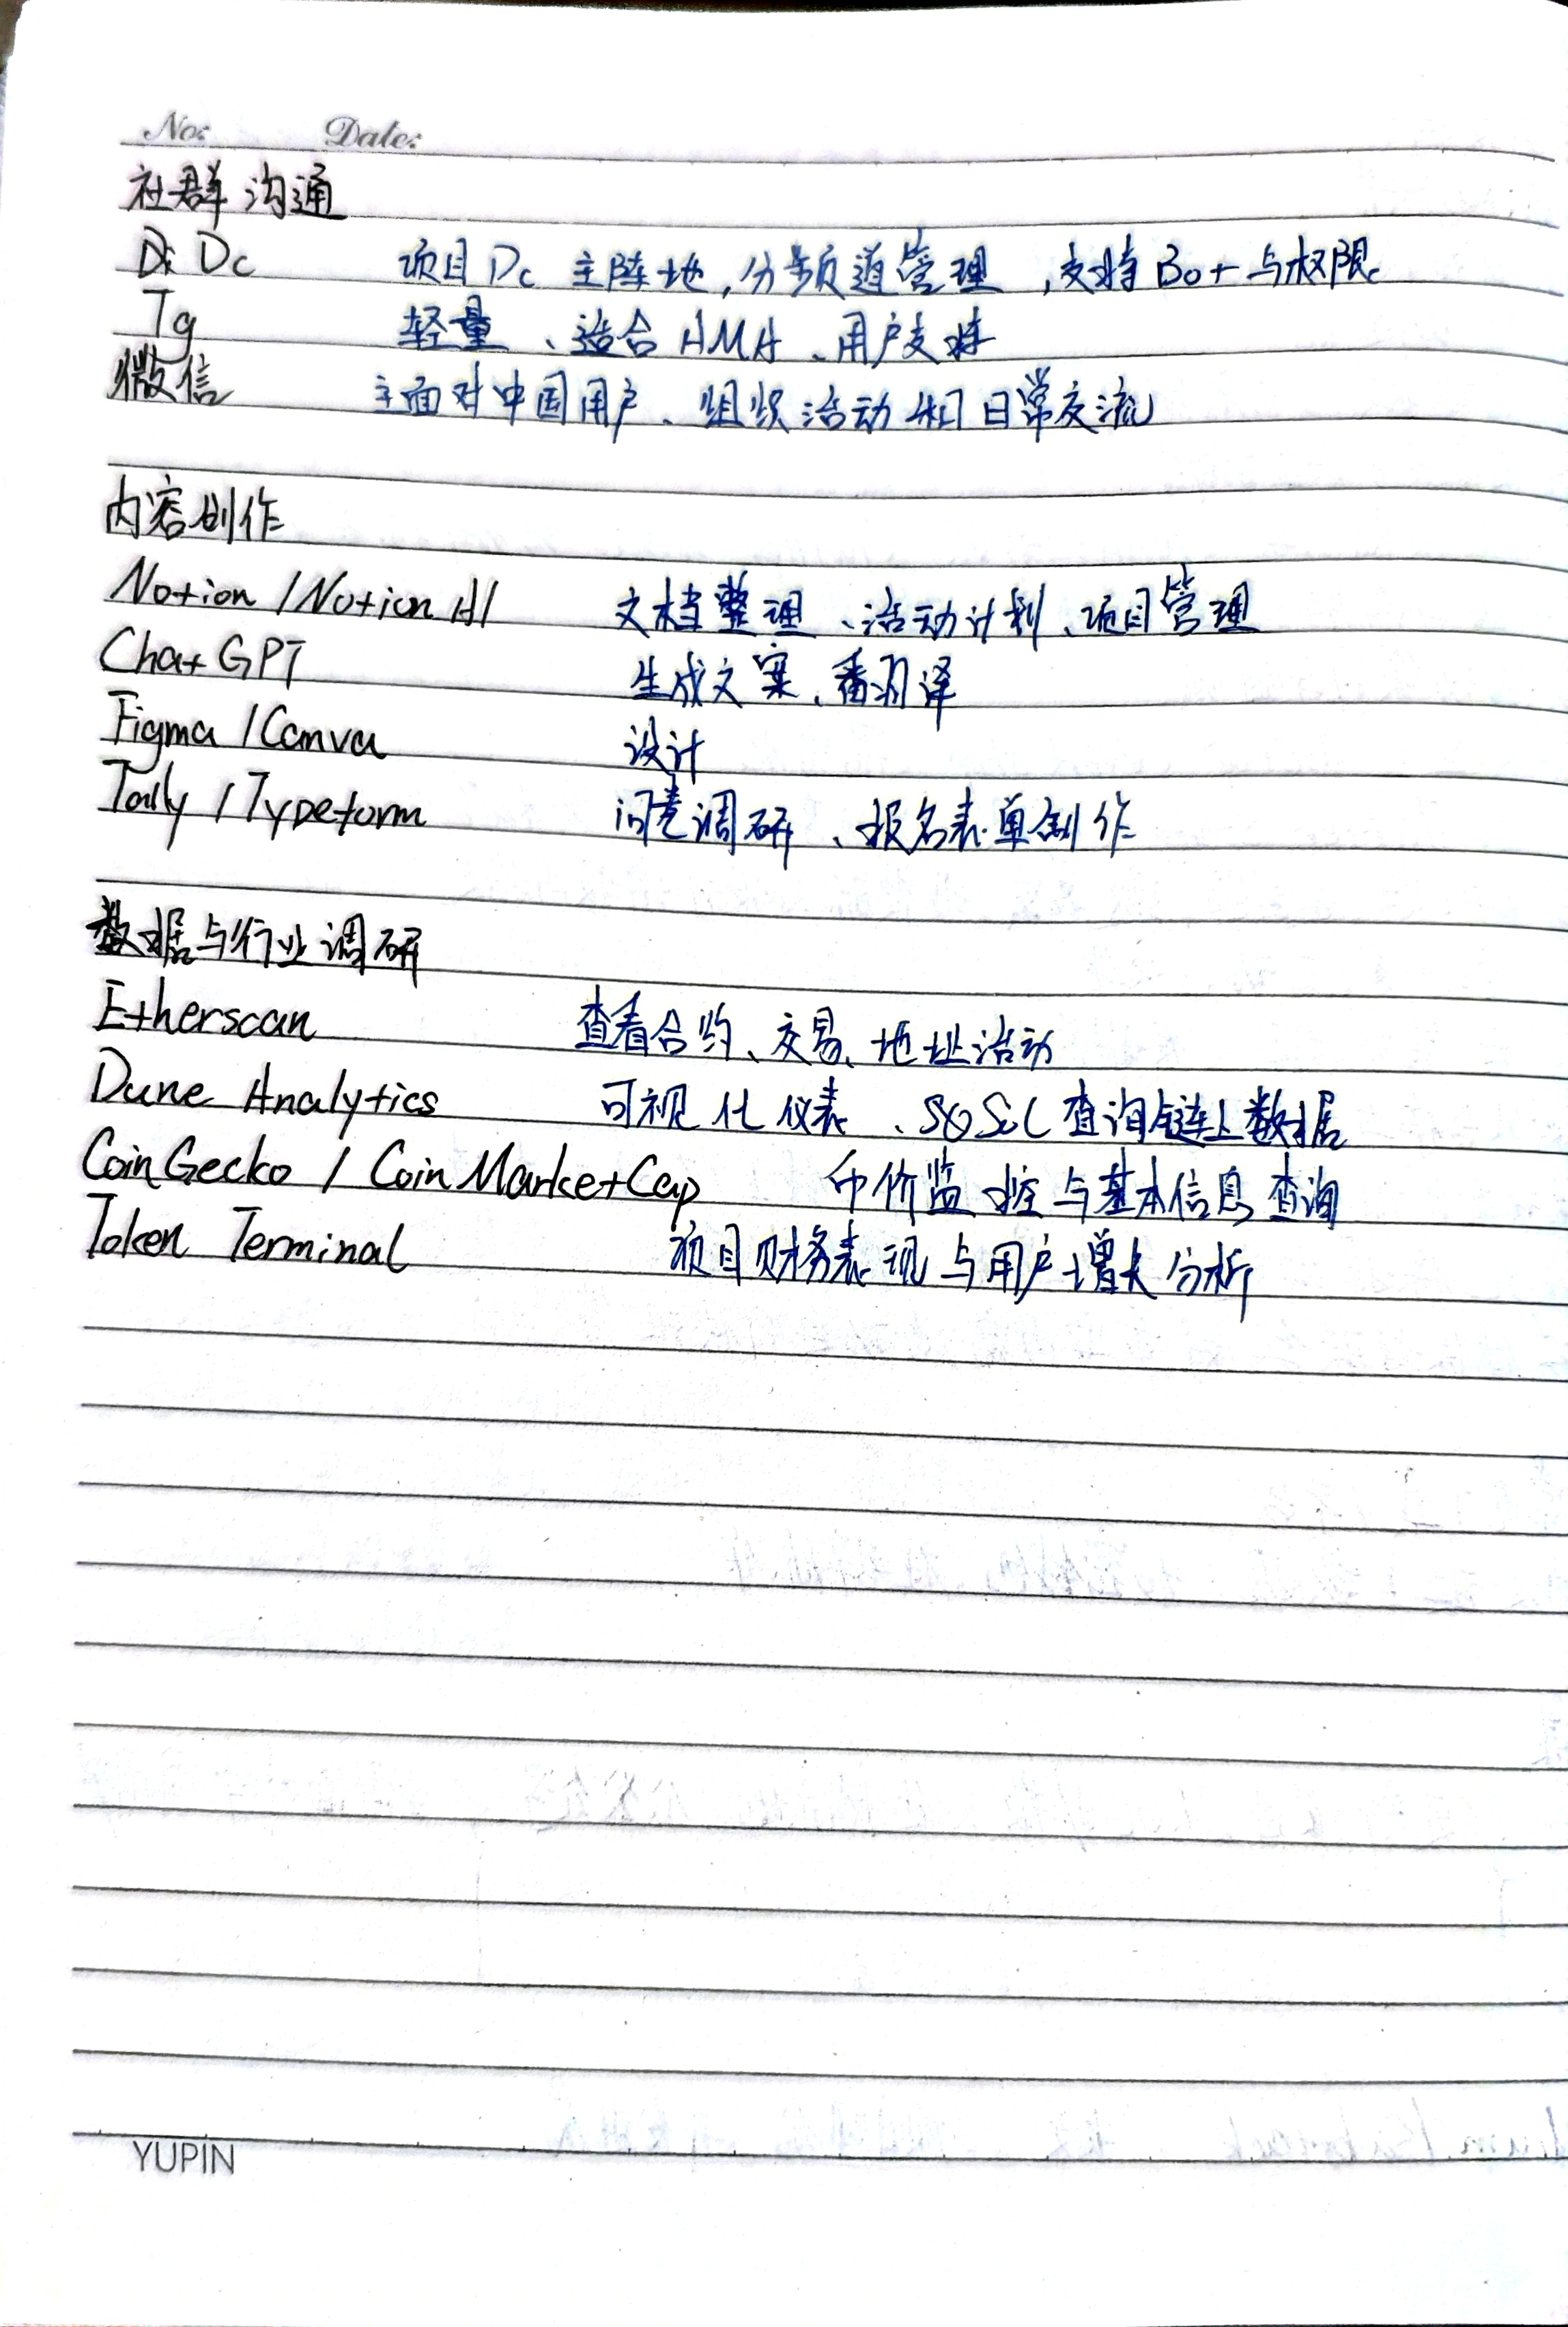 No: Date:
社群沟通
Dc 项目Dc主阵地,分频道管理,支持Bot与权限
Tg 轻量、适合AMA、用户支持
微信 主面对中国用户、组织活动和日常交流
内容创作
Notion / Notion AI 文档整理、活动计划、项目管理
ChatGPT 生成文案、翻译
Figma / Canva 设计
Tally / Typeform 问卷调研、报名表单创作
数据与行业调研
Etherscan 查看合约、交易、地址活动
Dune Analytics 可视化仪表、查询链上数据
CoinGecko / CoinMarketCap 币价监控与基本信息查询
Token Terminal 项目财务表现与用户增长分析
YUPIN